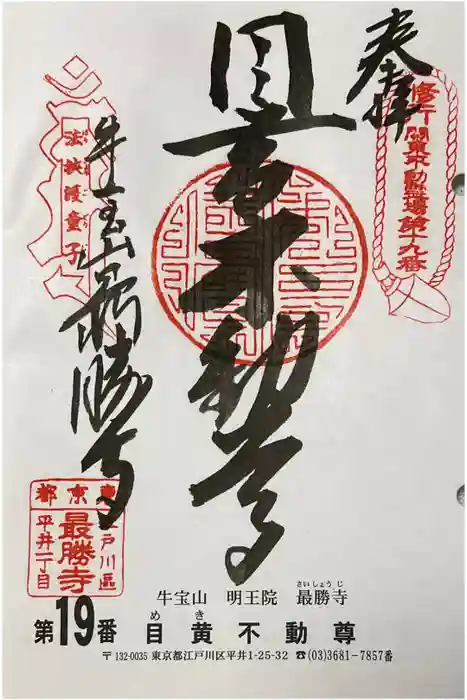 奉拝
修行 関東不動霊場第十九番
目黄不動尊
法挟護童子
牛宝山最勝寺
東京都
江戸川區
最勝寺
平井一丁目
さいしょうじ
牛宝山 明王院 最勝寺
めき
第19番 目黄不動尊
〒132-0035 東京都江戸川区平井1-25-32 ☎(03)3681-7857番